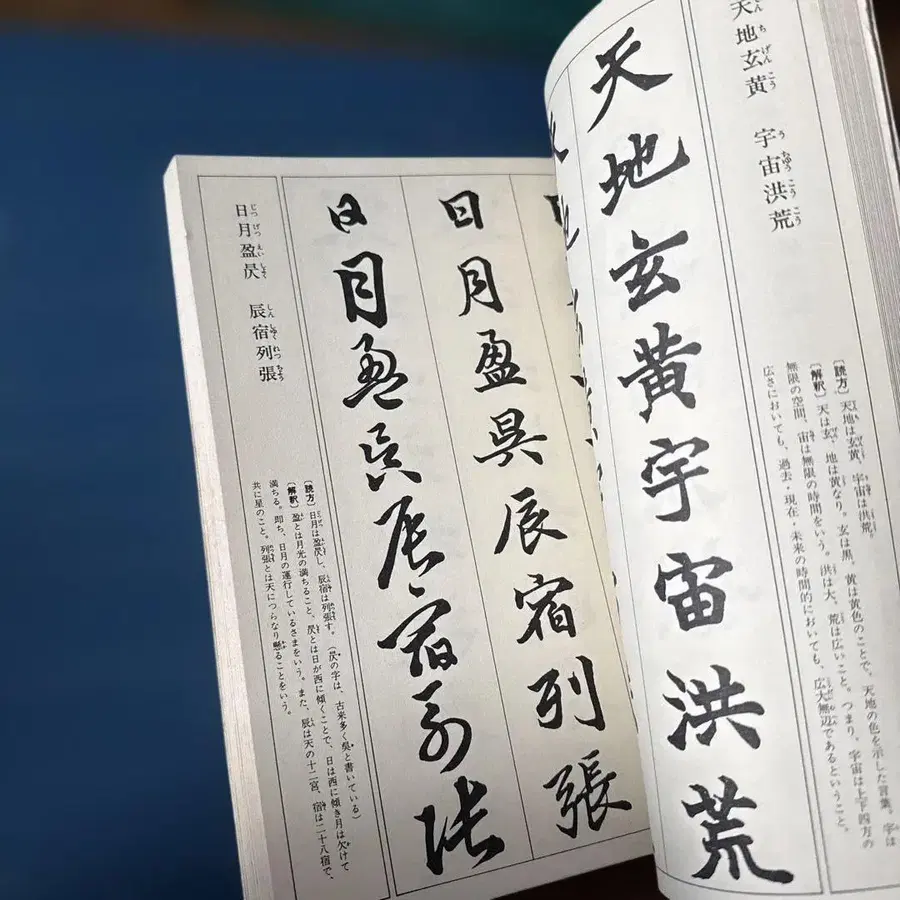 天地玄黄　宇宙洪荒
てん ち げん こう　う ちゅう こう こう
〔読方〕天地は玄黄、宇宙は洪荒。
〔解釈〕天は玄、地は黄なり。玄は黒、黄は黄色のことで、天地の色を示した言葉。宇は
無限の空間、宙は無限の時間をいう。洪は大、荒は広いこと。つまり、宇宙は上下四方の
広さにおいても、過去・現在・未来の時間的においても、広大無辺であるということ。
天地玄黄宇宙洪荒
日月盈昃辰宿列張
日月盈昃辰宿列張
日月盈昃　辰宿列張
じつ げつ えい しょく　しん しゅく れつ ちょう
〔読方〕日月は盈昃し、辰宿は列張す。（昃の字は、古来多く吳と書いている）
〔解釈〕盈とは月光の満ちること、昃とは日が西に傾くことで、日は西に傾き月は欠けて
満ちる。即ち、日月の運行しているさまをいう。また、辰は天の十二宮、宿は二十八宿で、
共に星のこと。列張とは天につらなり懸ることをいう。